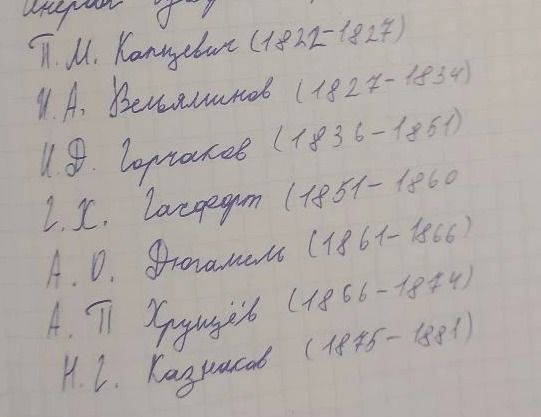 П. М. Капцевич (1822-1827)
И. А. Вельяминов (1827-1834)
И. Д. Горчаков (1836-1851)
Г. Х. Гасфорт (1851-1860
А. О. Дюгамель (1861-1866)
А. П Хрущёв (1866-1874)
Н. Г. Казнаков (1875-1881)